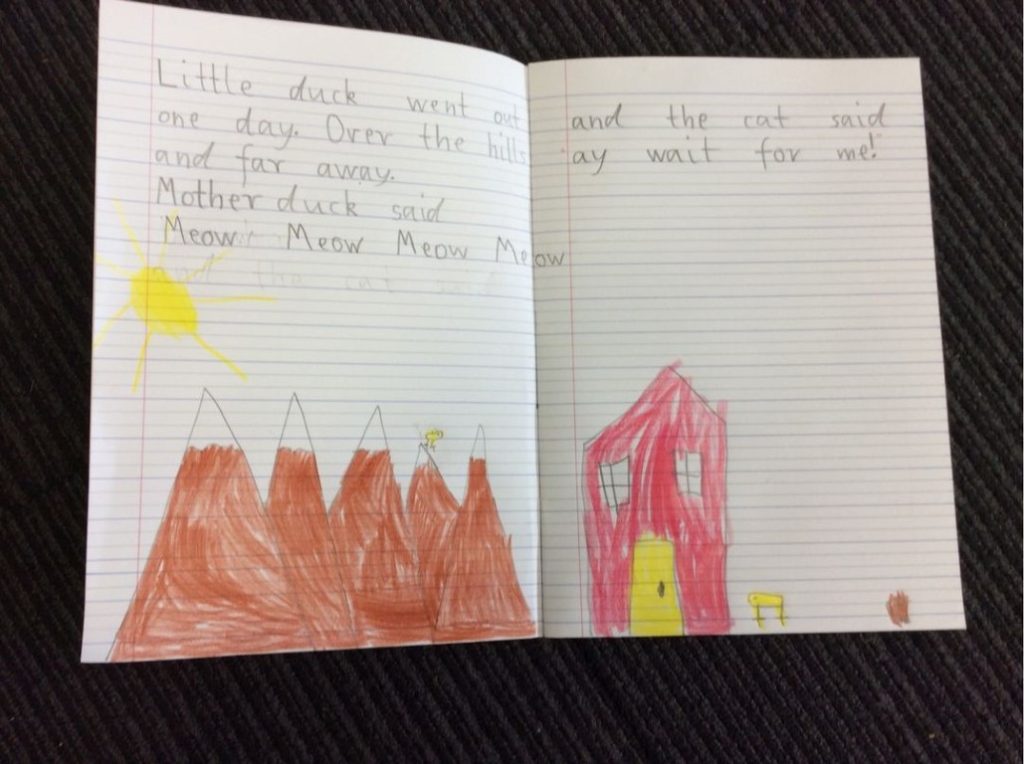 Little duck went out
one day. Over the hills
and far away.
Mother duck said
Meow Meow Meow Meow
and the cat said
and the cat said
ay wait for me!"